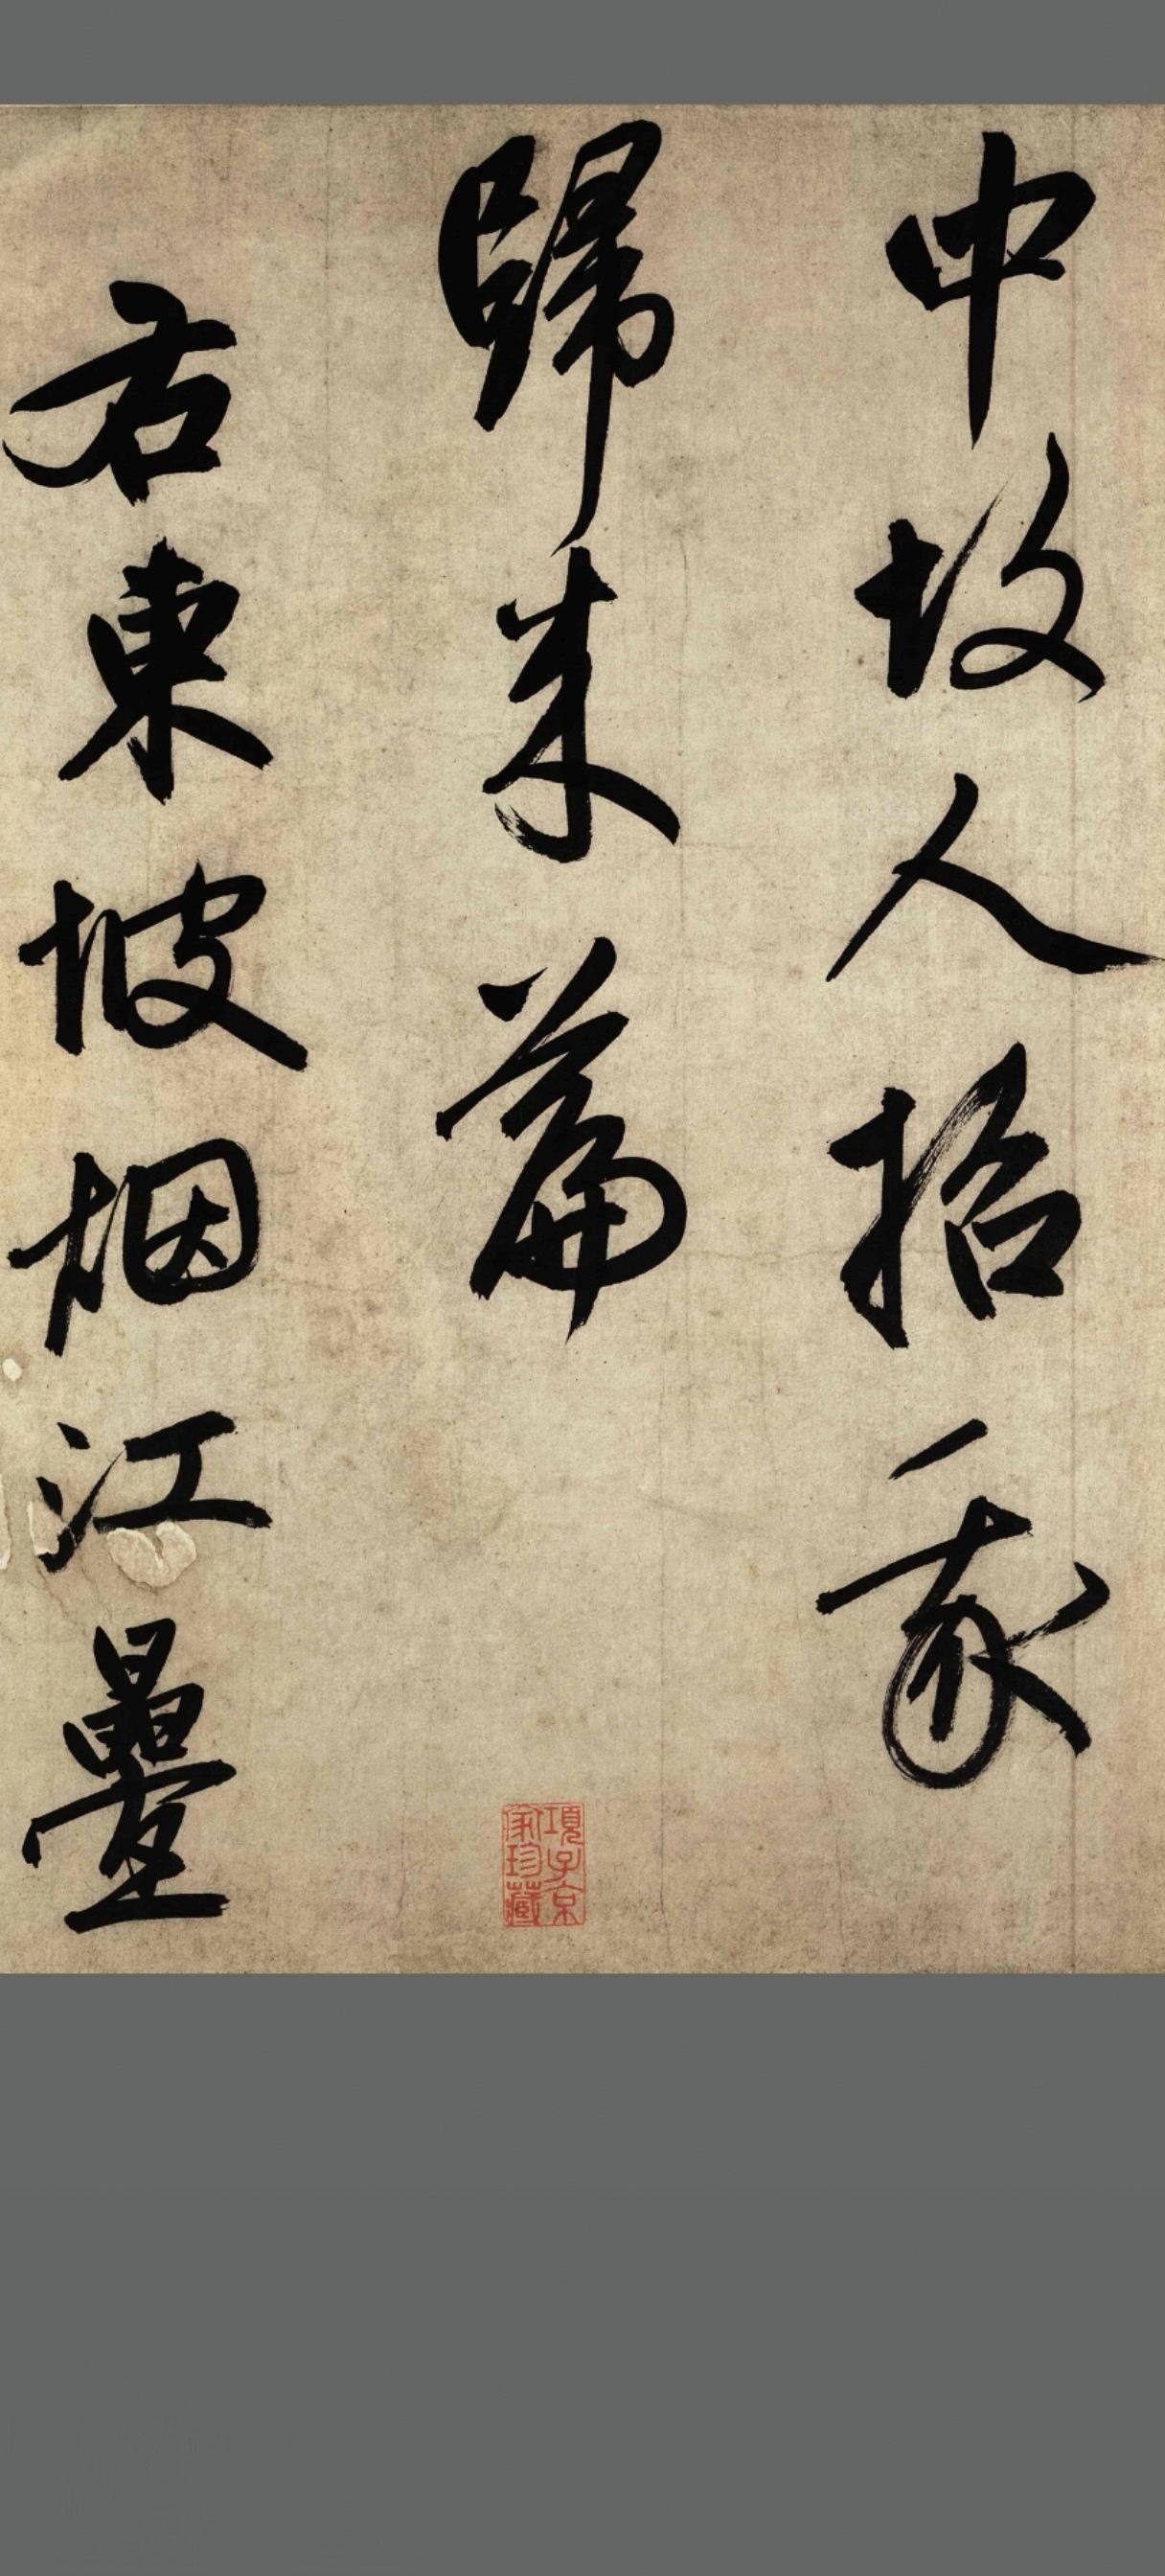 中故人招我
歸來篇
右東坡烟江疊
項子京
家珍藏